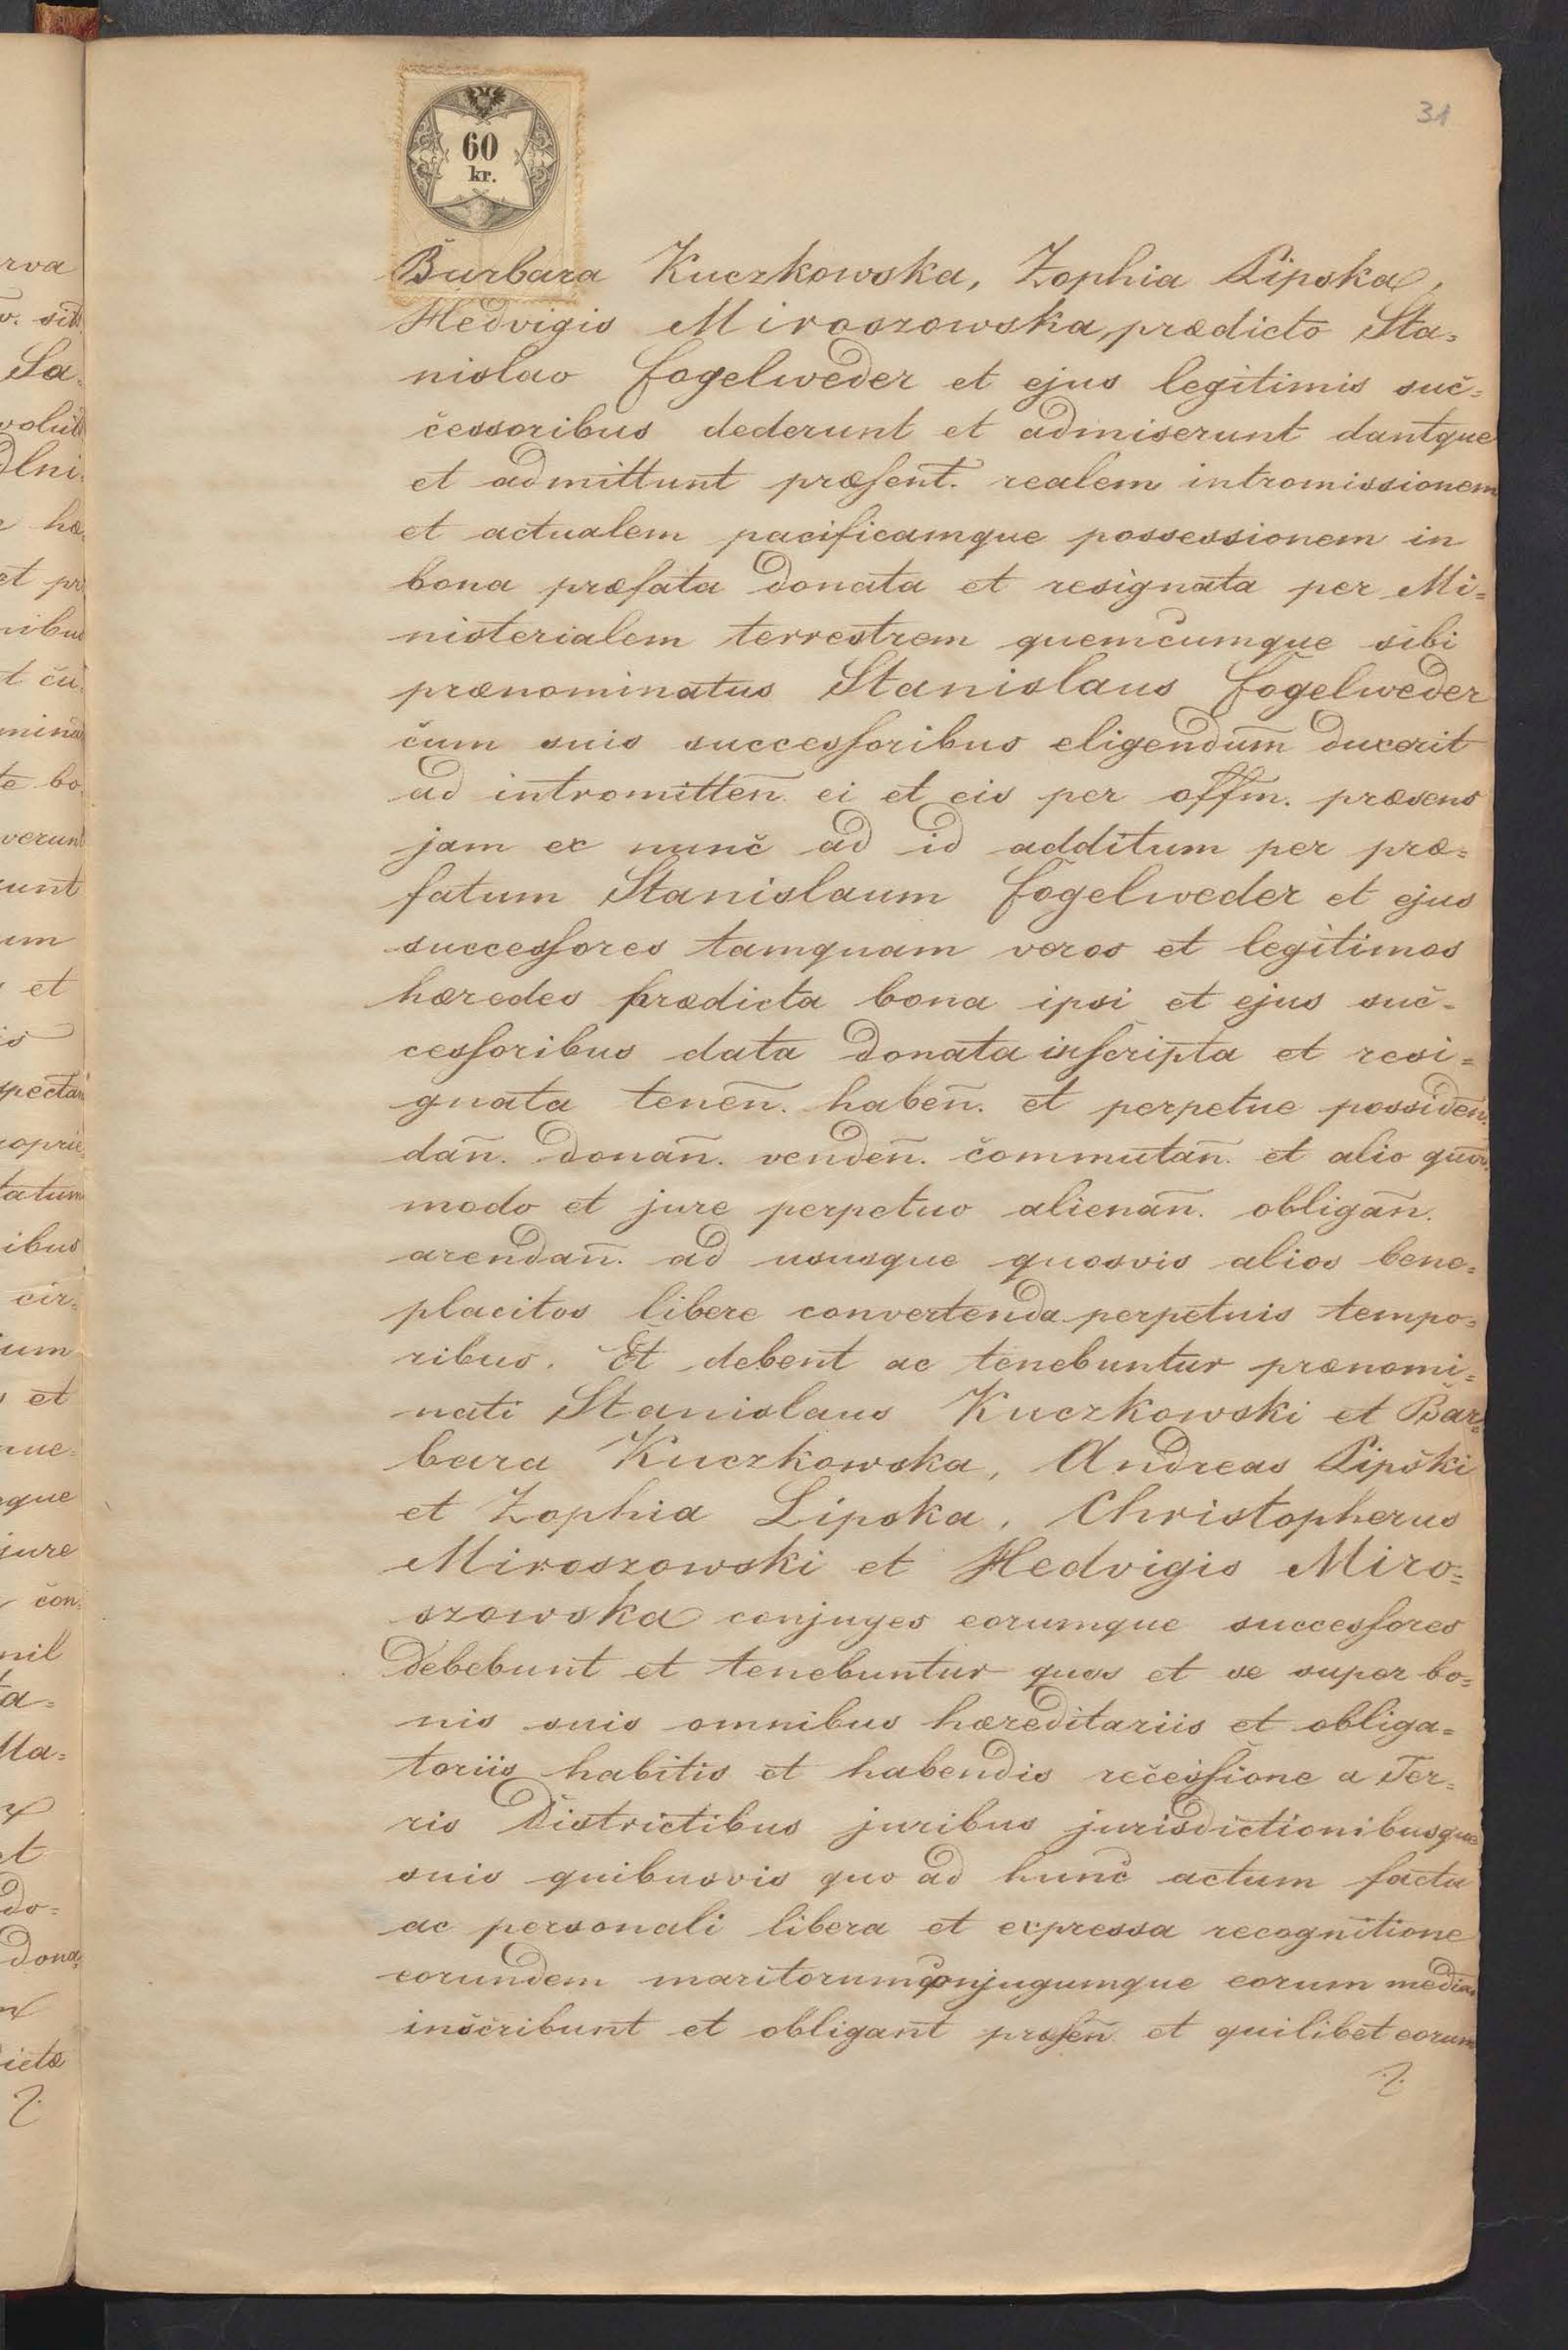 31
60
kr.
Barbara Kuczkowska, Zophia Lipska,
Hedvigis Miroszowska, prædicto Sta=
nislao Fogelweder et ejus legitimis suc=
cessoribus dederunt et admiserunt dantque
et admittunt præsent. realem intromissionem
et actualem pacificamque possessionem in
bona præfata donata et resignata per Mi=
nisterialem terrestrem quemcumque sibi
prænominatus Stanislaus Fogelweder
cum suis successoribus eligendum̅ duxerit
ad intromitten̅. ei et eis per offm. præsens
jam ex nunc ad id additum per præ=
fatum Stanislaum Fogelweder et ejus
successores tamquam veros et legitimos
hæredes prædicta bona ipsi et ejus suc=
cessoribus data donata inscripta et resi=
gnata tenen̅. haben̅. et perpetue possiden̅.
dan̅. donan̅. venden̅. commutan̅. et alio quov.
modo et jure perpetuo alienan̅. obligan̅.
arendan̅. ad ususque quosvis alios bene=
placitos libere convertenda perpetuis tempo=
ribus. Et debent ac tenebuntur prænomi=
nati Stanislaus Kuczkowski et Bar=
bara Kuczkowska, Andreas Lipski
et Zophia Lipska, Christopherus
Miroszowski et Hedvigis Miro=
szowska conjuges eorumque successores
debebunt et tenebuntur quos et se super bo=
nis suis omnibus hæreditariis et obliga=
toriis habitis et habendis recessione a Ter=
ris Districtibus juribus jurisdictionibusque
suis quibusvis quo ad hunc actum facta
ac personali libera et expressa recognitione
eorundem maritorum conjugumque eorum median
inscribunt et obligant præsen̅ et quilibet eorum